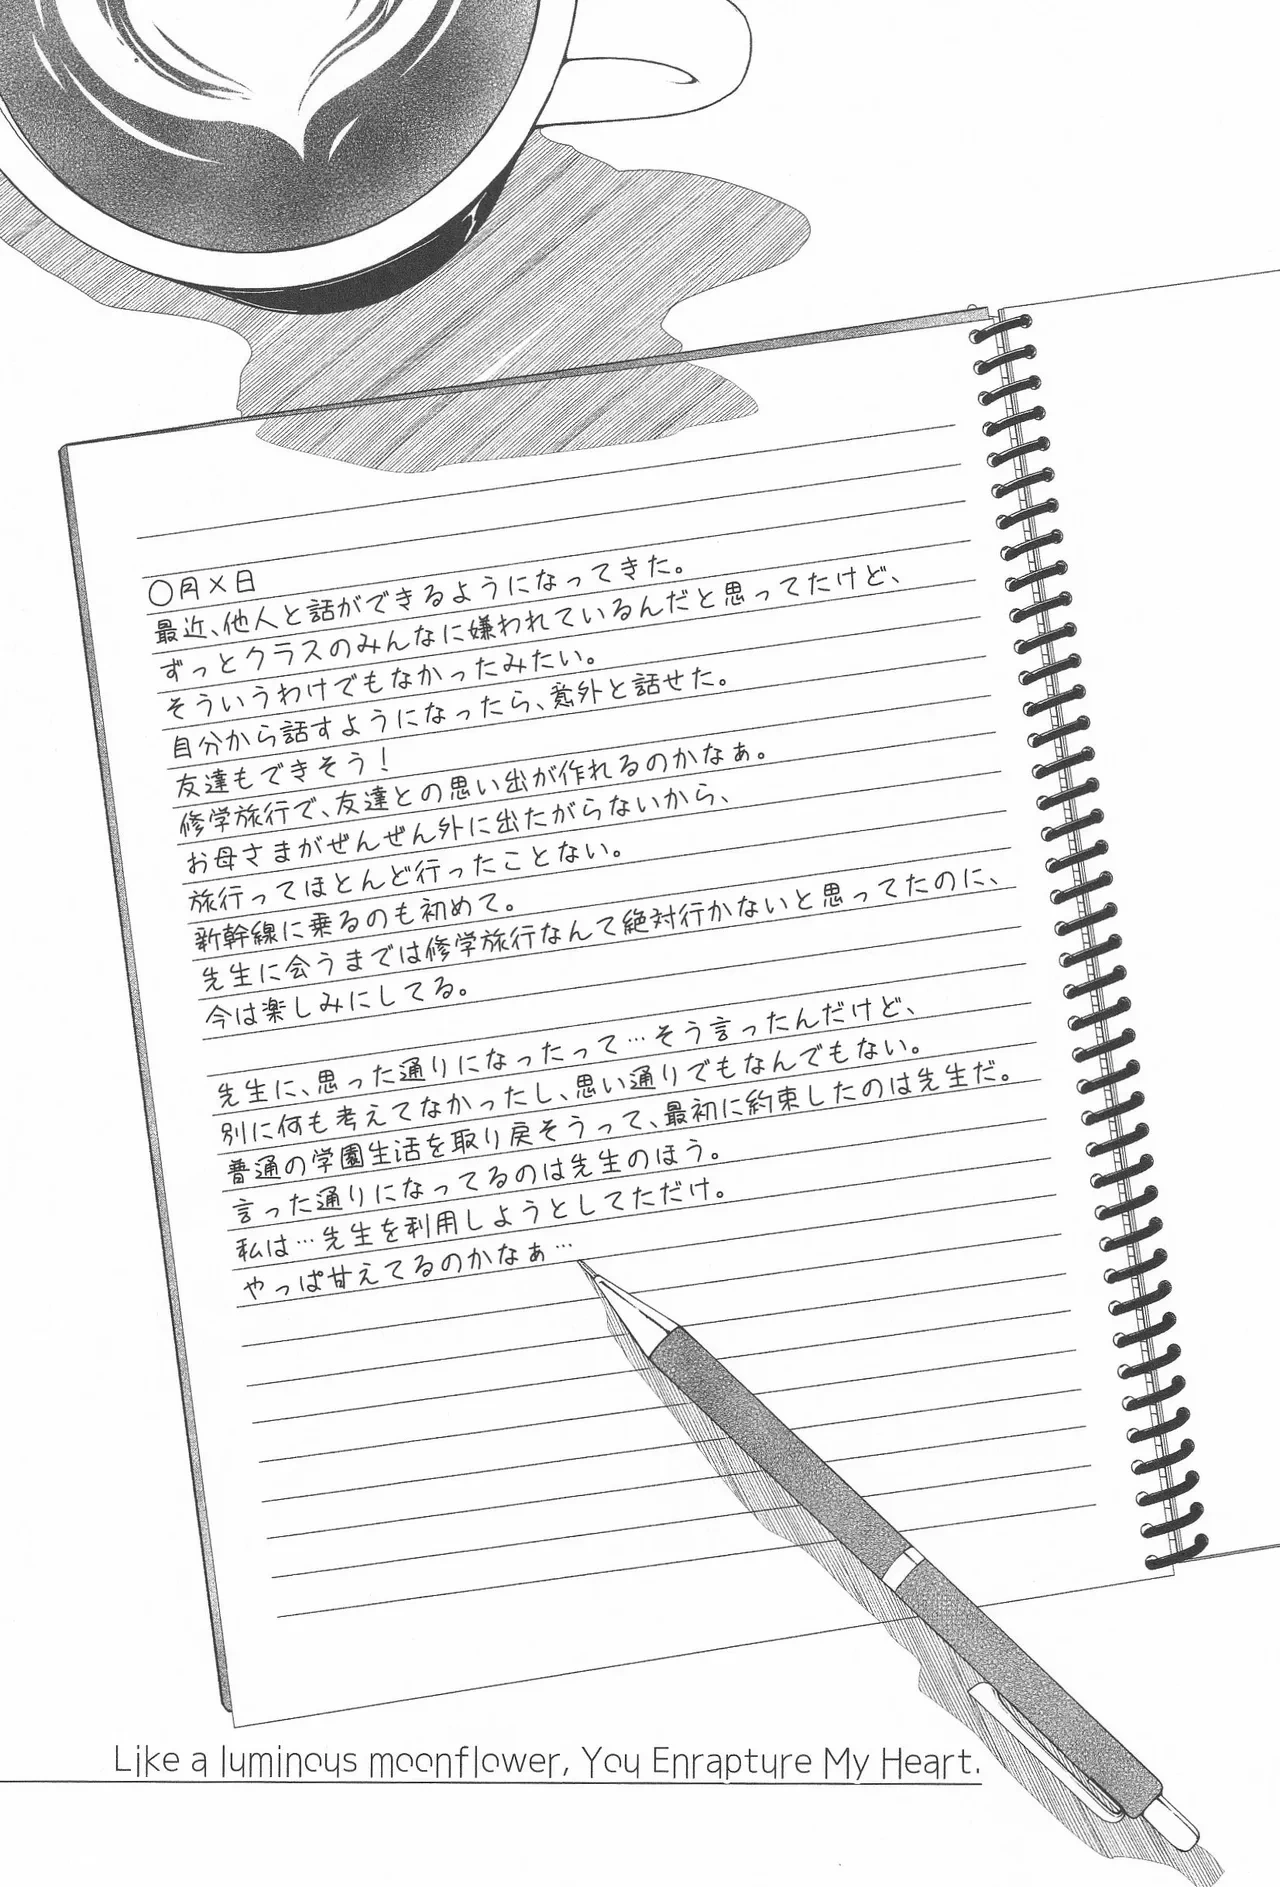 ○月×日
最近、他人と話ができるようになってきた。
ずっとクラスのみんなに嫌われているんだと思ってたけど、
そういうわけでもなかったみたい。
自分から話すようになったら、意外と話せた。
友達もできそう！
修学旅行で、友達との思い出が作れるのかなぁ。
お母さまがぜんぜん外に出たがらないから、
旅行ってほとんど行ったことない。
新幹線に乗るのも初めて。
先生に会うまでは修学旅行なんて絶対行かないと思ってたのに、
今は楽しみにしてる。
先生に、思った通りになったって…そう言ったんだけど、
別に何も考えてなかったし、思い通りでもなんでもない。
普通の学園生活を取り戻そうって、最初に約束したのは先生だ。
言った通りになってるのは先生のほう。
私は…先生を利用しようとしてただけ。
やっぱ甘えてるのかなぁ…
Like a luminous moonflower, You Enrapture My Heart.